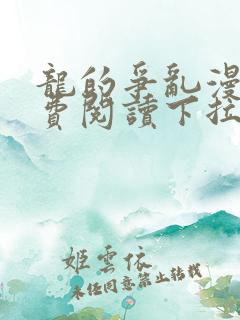 龍的爭亂漫
費閱讀下拉
姬雲依
未经同意禁止转载